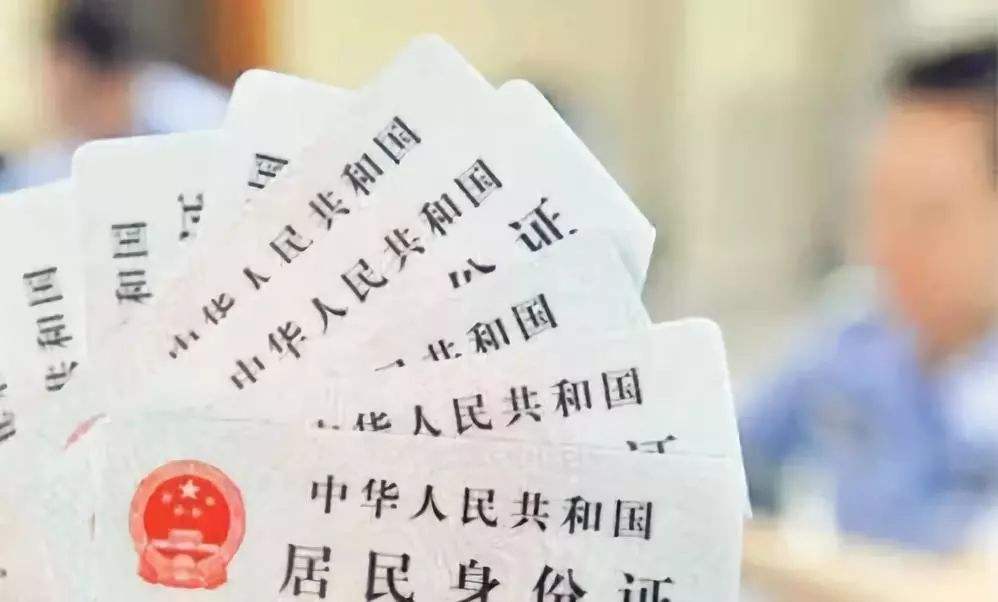 国
和国
共和国
证
中华人民共和国
中华人民共和国
证
共和国
中华人民共和国
证
中华人民共和国
居民身份证